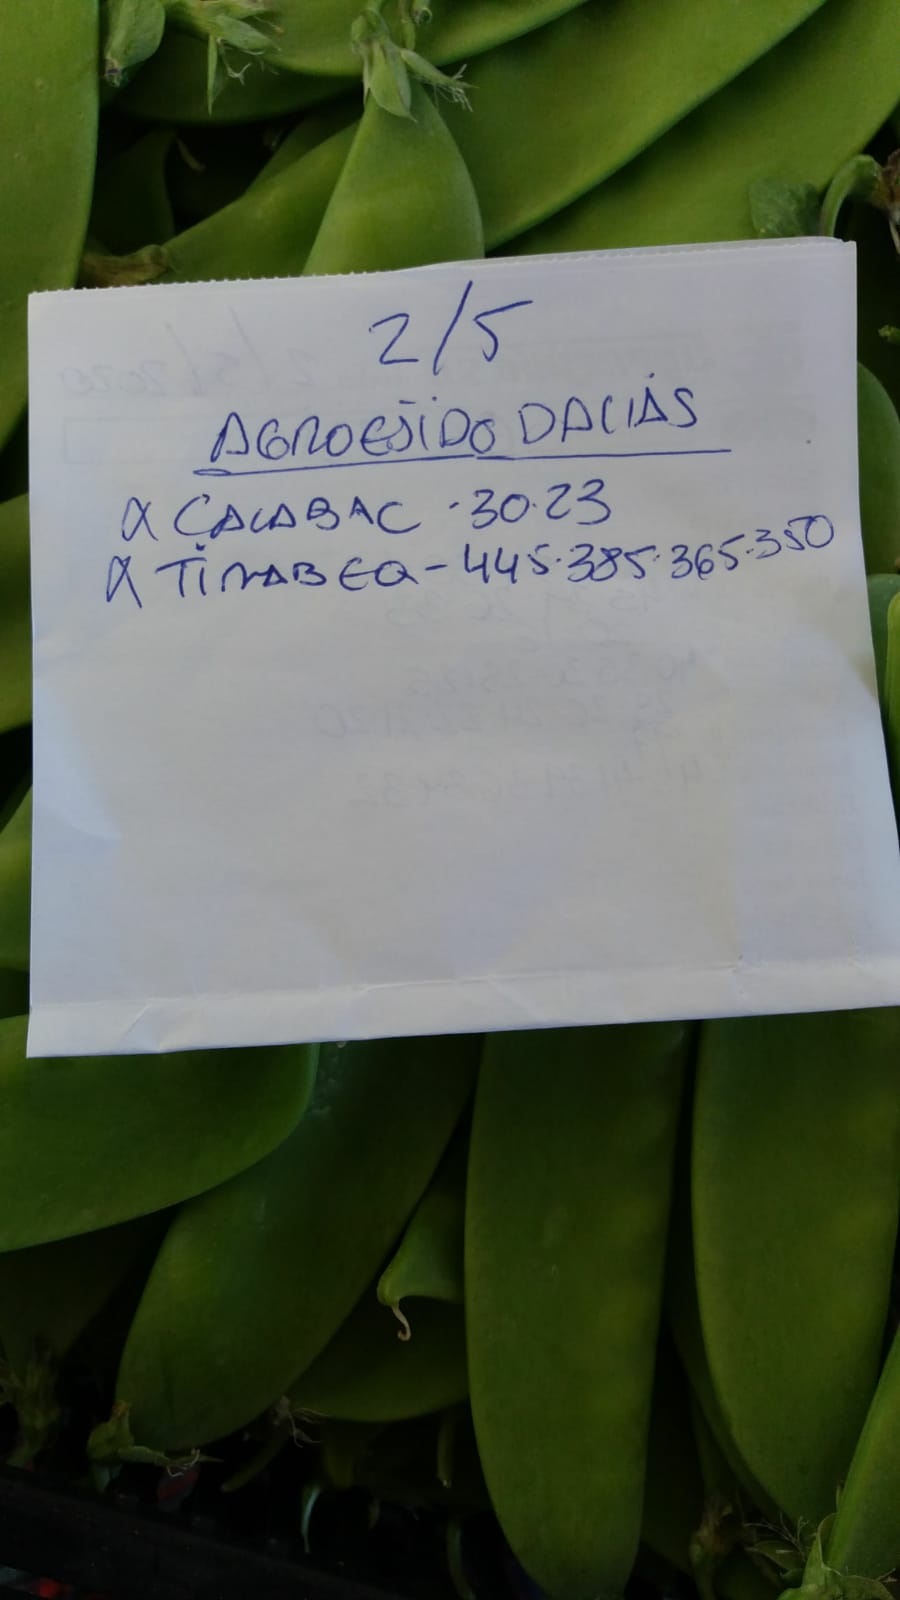 2/5
AGROEJIDO DALIAS
X CALABAC - 30.23
X TIRABEQ - 445.385.365.350
2/5/2020